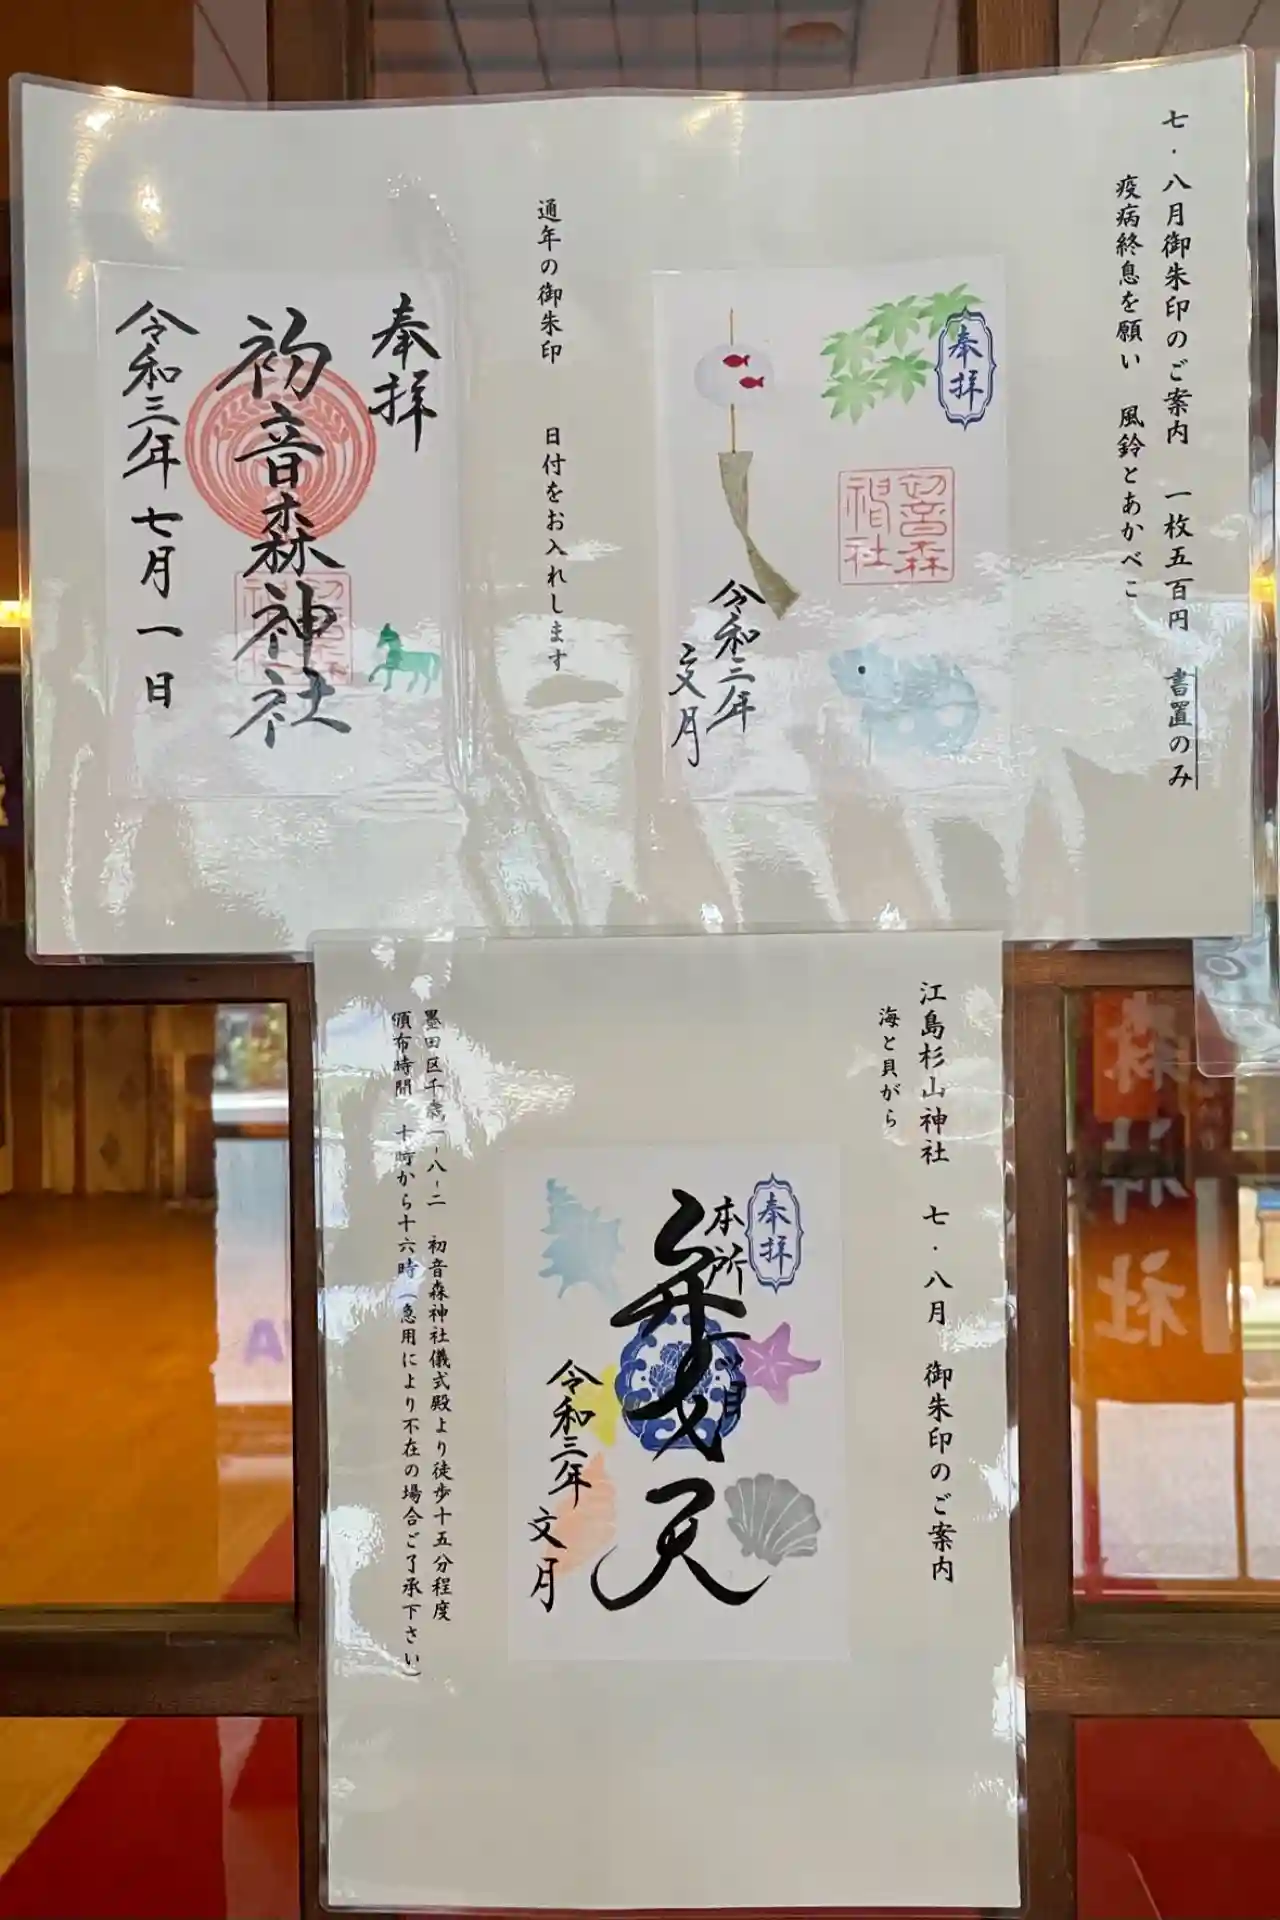 七・八月御朱印のご案内 一枚五百円 書置のみ
疫病終息を願い 風鈴とあかべこ
奉拝
初音森
神社
令和三年
文月
通年の御朱印 日付をお入れします
奉拝
初音森神社
令和三年七月一日
江島杉山神社 七・八月 御朱印のご案内
海と貝がら
奉拝
本所
一ツ目
弁天
令和三年
文月
墨田区千歳一-八-二 初音森神社儀式殿より徒歩十五分程度
頒布時間 十時から十六時(急用により不在の場合ご了承下さい)
森神社